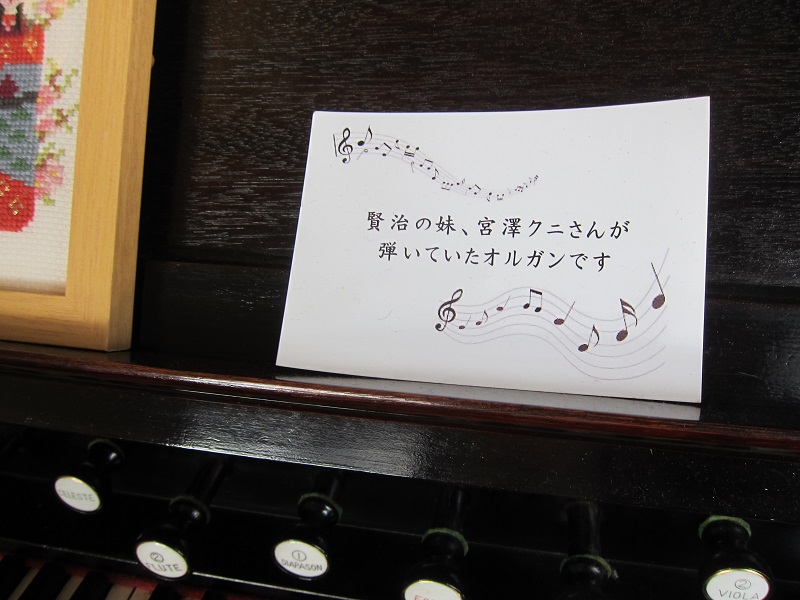 賢治の妹、宮澤クニさんが
弾いていたオルガンです
CELESTE
② FLUTE
① DIAPASON
② VIOLA